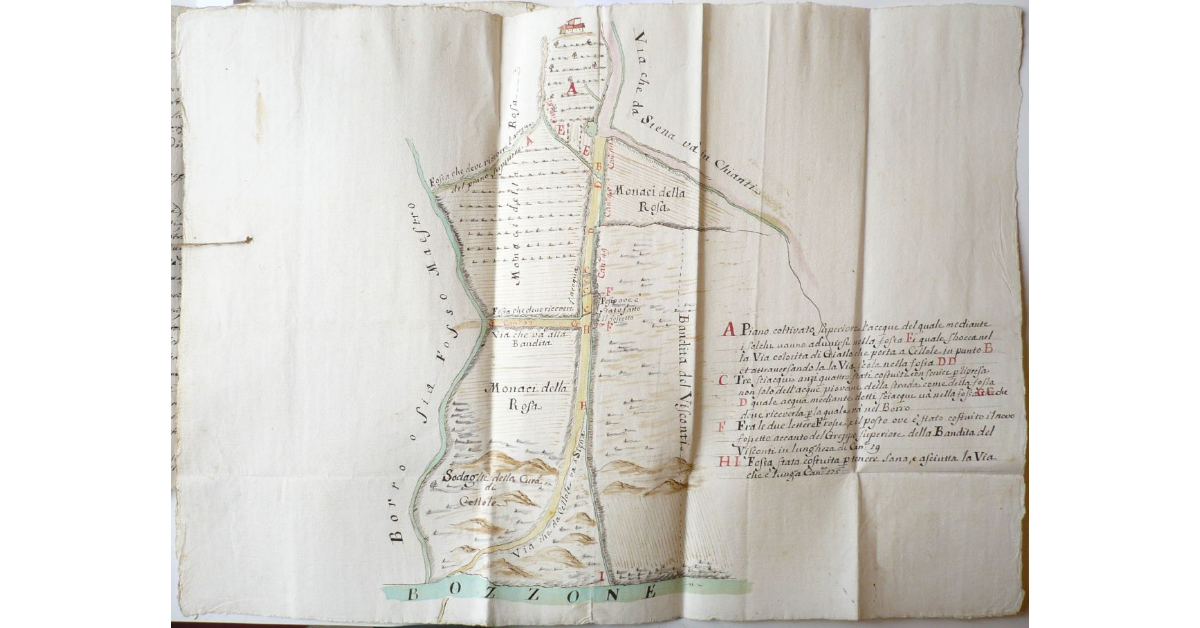 Via che da Siena và in Chianti
A
A
E
E
B
D
Fossa che deve ricevere
del piano
Rosa
Monaci della
Monaci della
Rosa
D
Can: 49
F
F
Fossa che deve ricevere
G
H
Via che và alla
Bandita
Monaci della
Rosa
H
Bandita del Visconti
Borro o sia Fosso Maestro
Sodaglie della Cura
di
Cellole
Via che da Cellole và a Siena
I
BOZZONE
A Piano coltivato superiore l'acque del quale mediante
i solchi vanno ad unirsi nella fossa E, quale sbocca nel
la Via colorita di Giallo che porta a Cellole in punto B
et attraversando la la Via scola nella fossa DD
C Tre sciacqui anzi quattro stati costruiti con
non solo dell'acque piovane della strada come della fossa
D quale acqua mediante detti sciacqui và nella fossa che
deve riceverla, la quale và nel Borro
F Fra le due lettere F rosse, è il posto ove è stato costruito il nuovo
fossetto accanto del Greppo superiore della Bandita del
Visconti in lunghezza di Can: 29
HI Fossa stata costruita p tenere sana, e asciutta la Via
che è lunga Can: